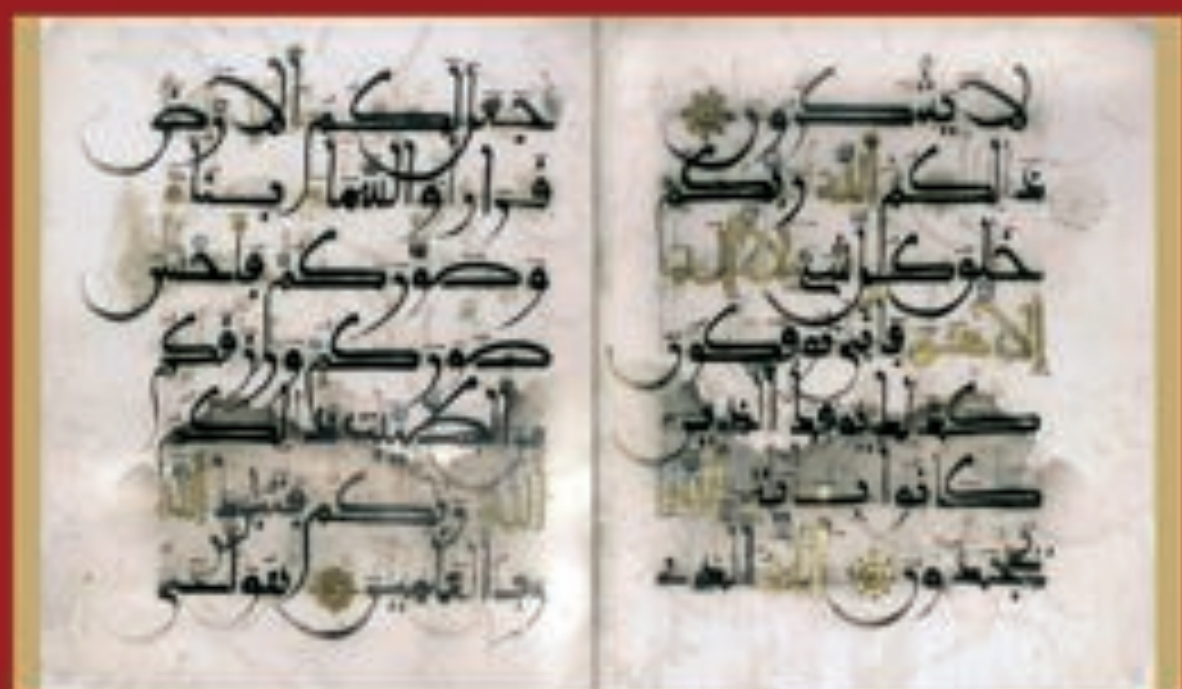 لا يشكرون
ذالكم الله ربكم
خلق كل شيء لا إله
إلا هو فأنى توفكون
كذلك يوفك الذين
كانوا بـٔايت الله
يجحدون الله الذي
جعل لكم الأرض
قرارا والسماء بناء
وصوركم فأحسن
صوركم ورزقكم
من الطيبت ذالكم
الله ربكم فتبرك الله
رب العلمين هو الحي